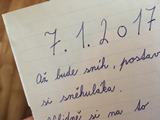 7.1.2017
Až bude sníh, postav
si sněhuláka.
si na to